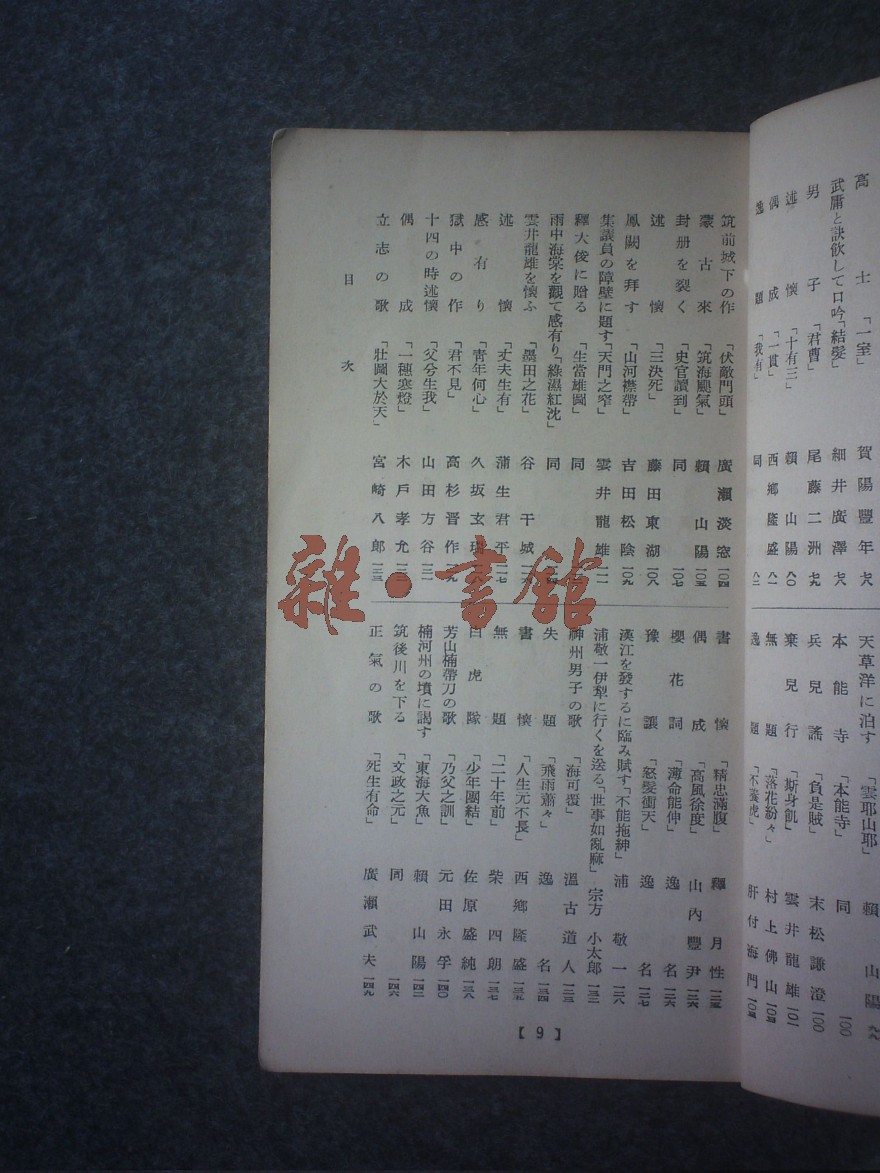 高士「一室」 賀陽豐年 七八
武庸と訣飮して口吟「結髮」 細井廣澤 七八
男子「君曹」 尾藤二洲 七九
述懷「十有三」 賴山陽 八〇
偶成「一貫」 西鄕隆盛 八一
逸題「我有」 同 八二
天草洋に泊す「雲耶山耶」 賴山陽 九九
本能寺「本能寺」 同 一〇〇
兵兒謠「負是賊」 末松謙澄 一〇〇
棄兒行「斯身飢」 雲井龍雄 一〇一
無題「落花紛々」 村上佛山
逸題「不養虎」 肝付海門
筑前城下の作「伏敵門頭」 廣瀨淡窓 一〇四
蒙古來「筑海颶氣」 賴山陽 一〇五
封册を裂く「史官讀到」 同 一〇七
述懷「三決死」 藤田東湖 一〇八
鳳闕を拜す「山河襟帶」 吉田松陰 一〇九
集議員の障壁に題す「天門之窄」 雲井龍雄 一一一
釋大俊に贈る「生當雄圖」 同
雨中海棠を觀て感有り「綠濕紅沈」 同
雲井龍雄を懷ふ「墨田之花」 谷干城
述懷「丈夫生有」 蒲生君平 一一七
感有り「靑年何心」 久坂玄瑞
獄中の作「君不見」 高杉晋作
十四の時述懷「父兮生我」 山田方谷 一二一
偶成「一穗寒燈」 木戶孝允
立志の歌「壯圖大於天」 宮崎八郎
書懷「精忠滿腹」 釋月性 一二五
偶成「高風徐度」 山內豐尹 一二六
櫻花詞「薄命能伸」 逸名 一二六
豫讓「怒髮衝天」 逸名 一二七
漢江を發するに臨み賦す「不能拖紳」 浦敬一 一二八
浦敬一伊犁に行くを送る「世事如亂麻」 宗方小太郎 一三二
神州男子の歌「海可覆」 溫古道人
失題「飛雨蕭々」 逸名 一三四
書懷「人生元不長」 西鄕隆盛 一三五
無題「二十年前」 柴四朗 一三七
白虎隊「少年團結」 佐原盛純 一三八
芳山楠帶刀の歌「乃父之訓」 元田永孚 一四〇
楠河州の墳に謁す「東海大魚」 賴山陽 一四二
筑後川を下る「文政之元」 同 一四六
正氣の歌「死生有命」 廣瀨武夫 一四九
目次
【9】
雜·書館